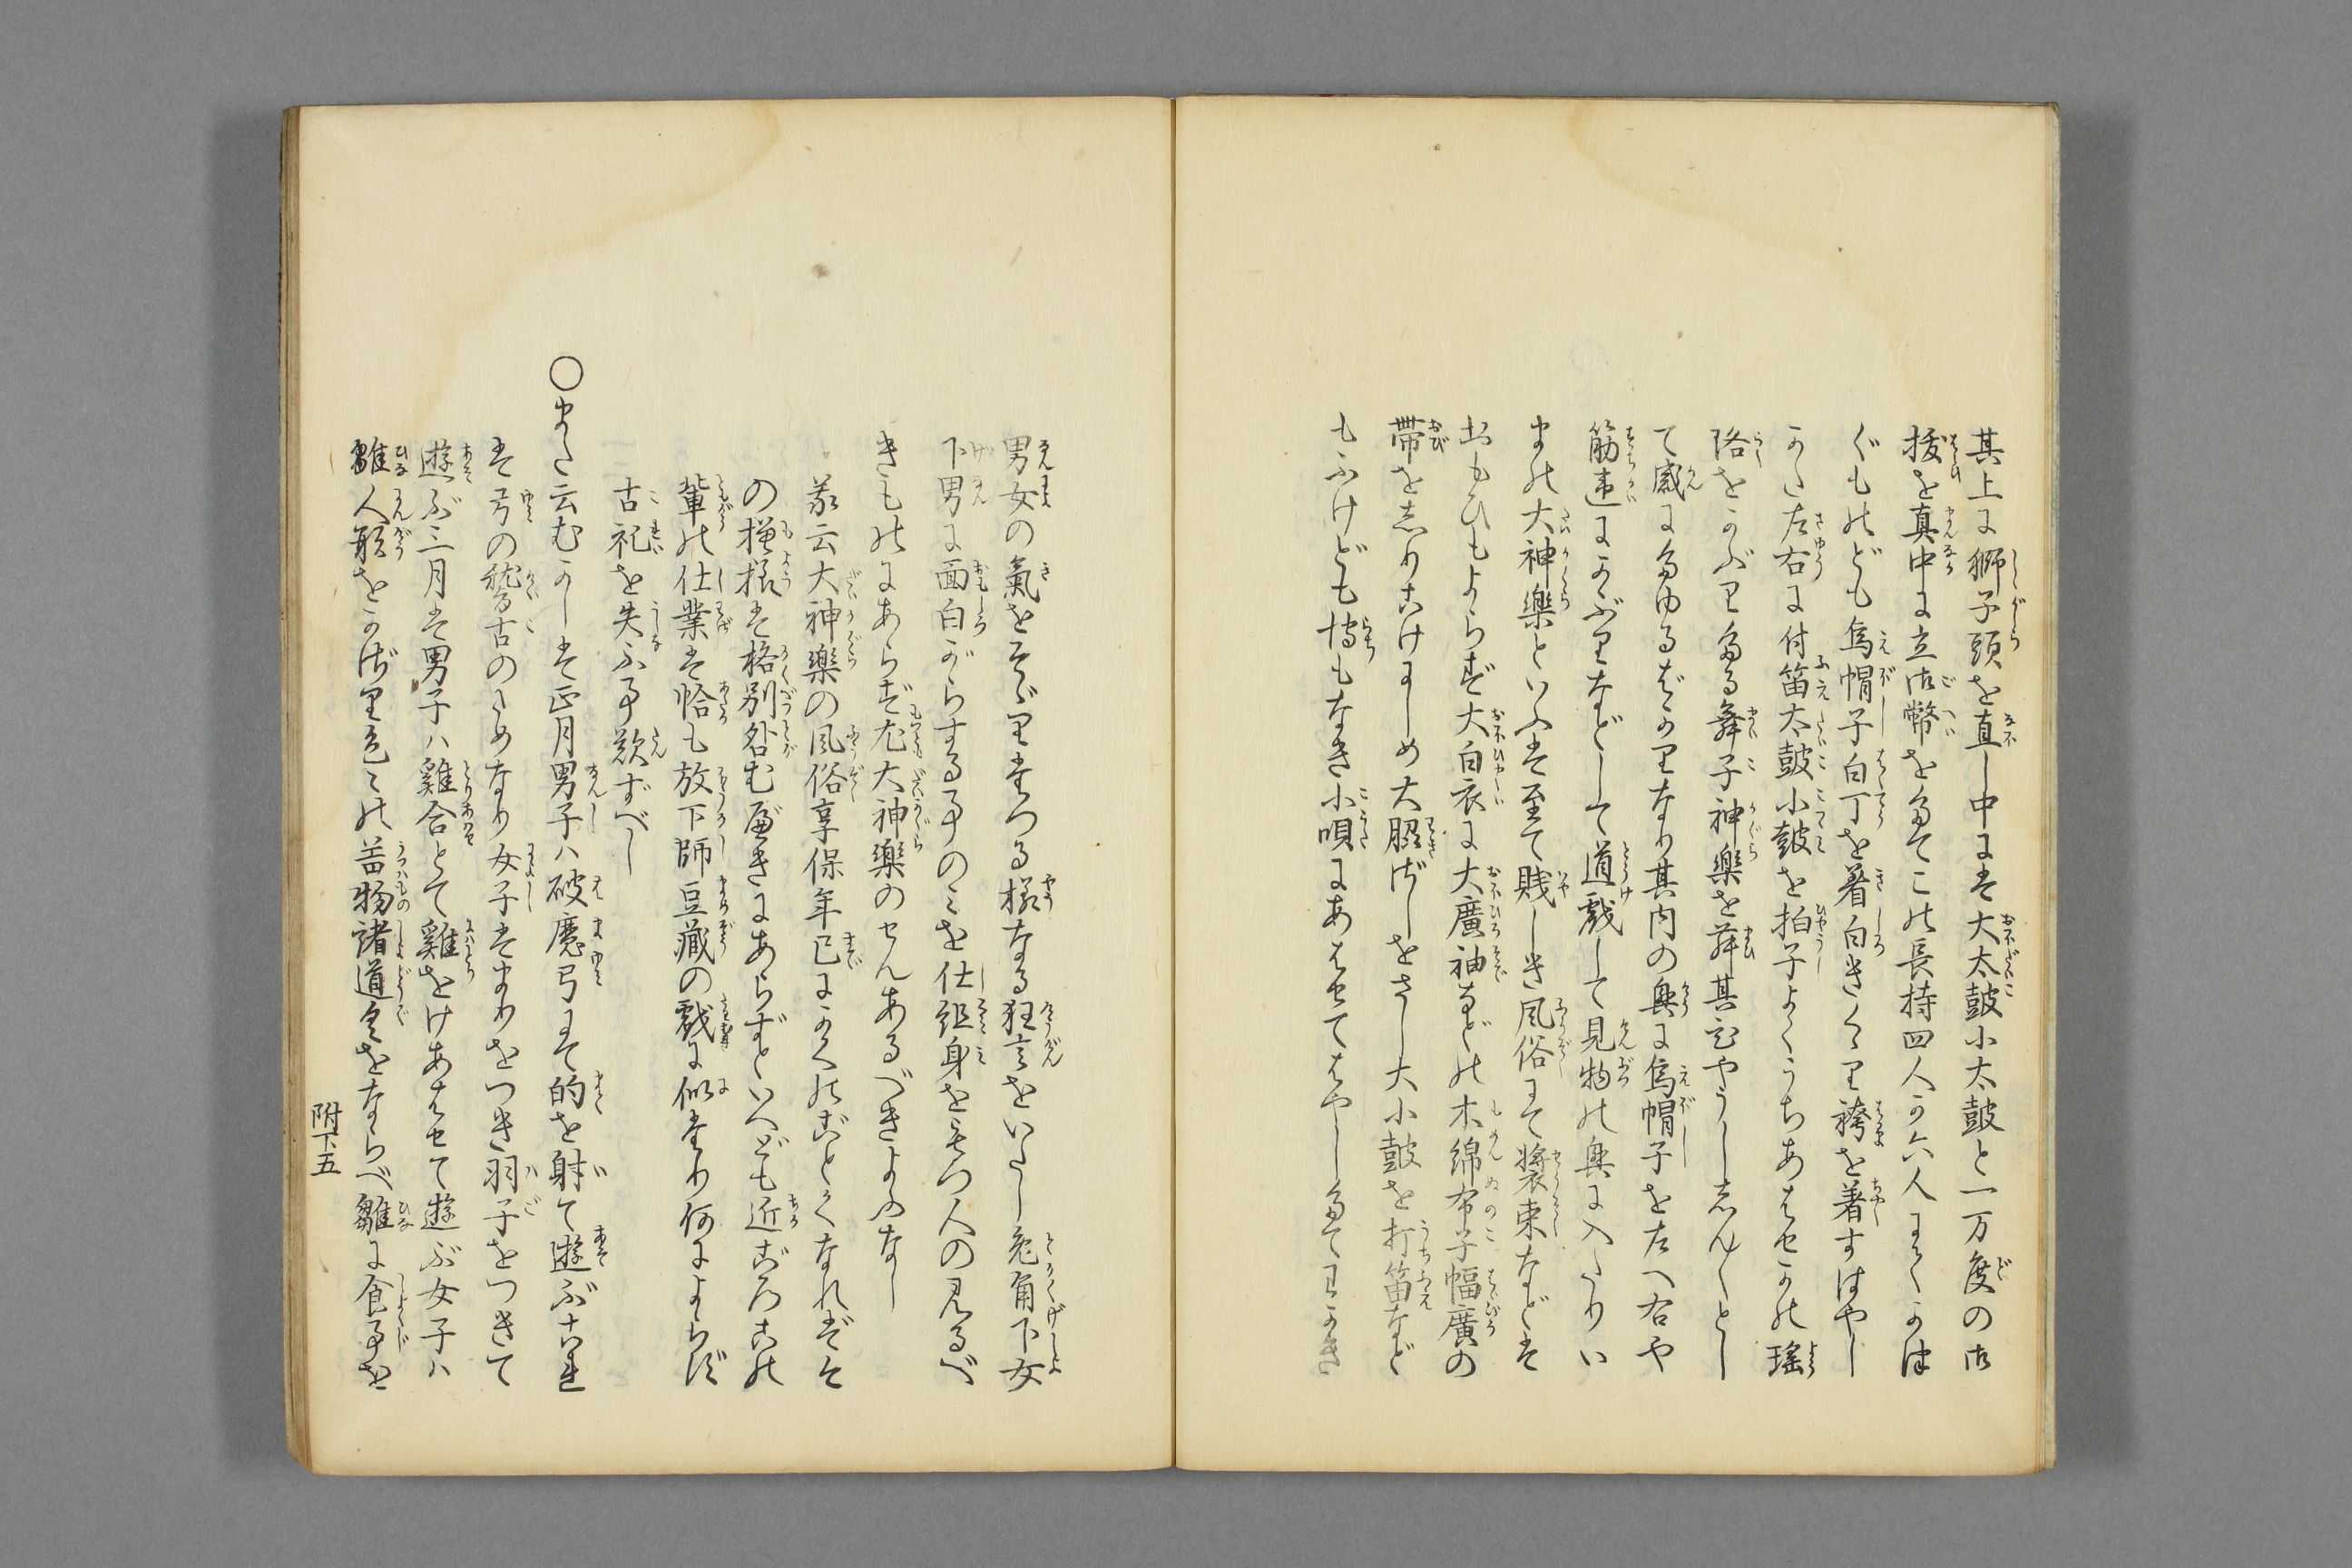 其上に獅子頭を直し中には大太鼓小太鼓と一万度の御
祓を真中に立御幣をたてこの長持四人か六人にてかつ
ぐものども烏帽子白丁を着白きくゝり袴を着すはやし
かた左右に付笛太鼓小鼓を拍子よくうちあはせかの瑤
珞をかぶりたる舞子神楽を舞其さまやうしをんしんとし
て感にたゆるばかりなり其内の輿に烏帽子を左へ右や
筋違にかぶりなどして道戯して見物の輿に入たりい
まの大神樂といふは至て賎しき風俗にて裝束などは
おもひもよらず大白衣に大廣袖などの木綿布子幅廣の
帯をしりこけにしめ大脇ざしをさし大小鼓を打笛など
もふけども埓もなき小唄にあはせてはやしたてわかき
男女の氣をそゝりたつる樣なる狂言をいたし兎角下女
下男に面白がらする事のみを仕組身をもつ人の見るべ
きものにあらず尤大神樂のせんあるべきよふなし
荻云大神樂の風俗享保年已にかくのごとくなればそ
の摸樣は格別咎むべきにあらずといへども近ごろこの
輩の仕業は恰も放下師豆蔵の戯に似たり何によらず
古礼を失ふ事歎ずべし
〇また云むかしは正月男子ハ破魔弓にて的を射て遊ぶこれ
は弓の稽古のためなり女子はまりをつき羽子をつきて
遊ぶ三月は男子ハ雞合とて雞をけあはせて遊ぶ女子ハ
雛人形をかざり色々の器物諸道具をならべ雛に食事を
附下五